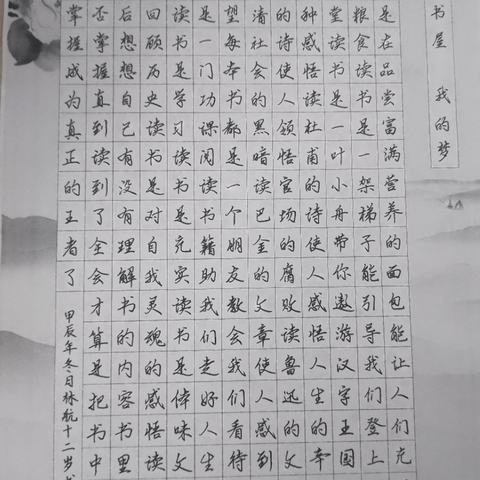 书屋 我的梦
是在品尝富满营养的面包能让人们充
粮食读书是一架梯子能引导我们登上
堂读书是一叶小舟带你遨游汉字王国
种感悟读杜甫的诗使人感悟人生的
的诗使人领悟官场的腐败读鲁迅的文
清社会的黑暗读巴金的文章使人感到
望每本书都是一个朋友教会我们看待
是一门功课阅读书籍助我们走好人生
读书是学习读书是充实读书是味文
回顾历史读书是对自我灵魂的感悟读
后想想自己有没有理解书的内容书里
否掌握真到读到了全会才算是把书中
掌握成为真正的王者了
甲辰年冬日林航十二岁